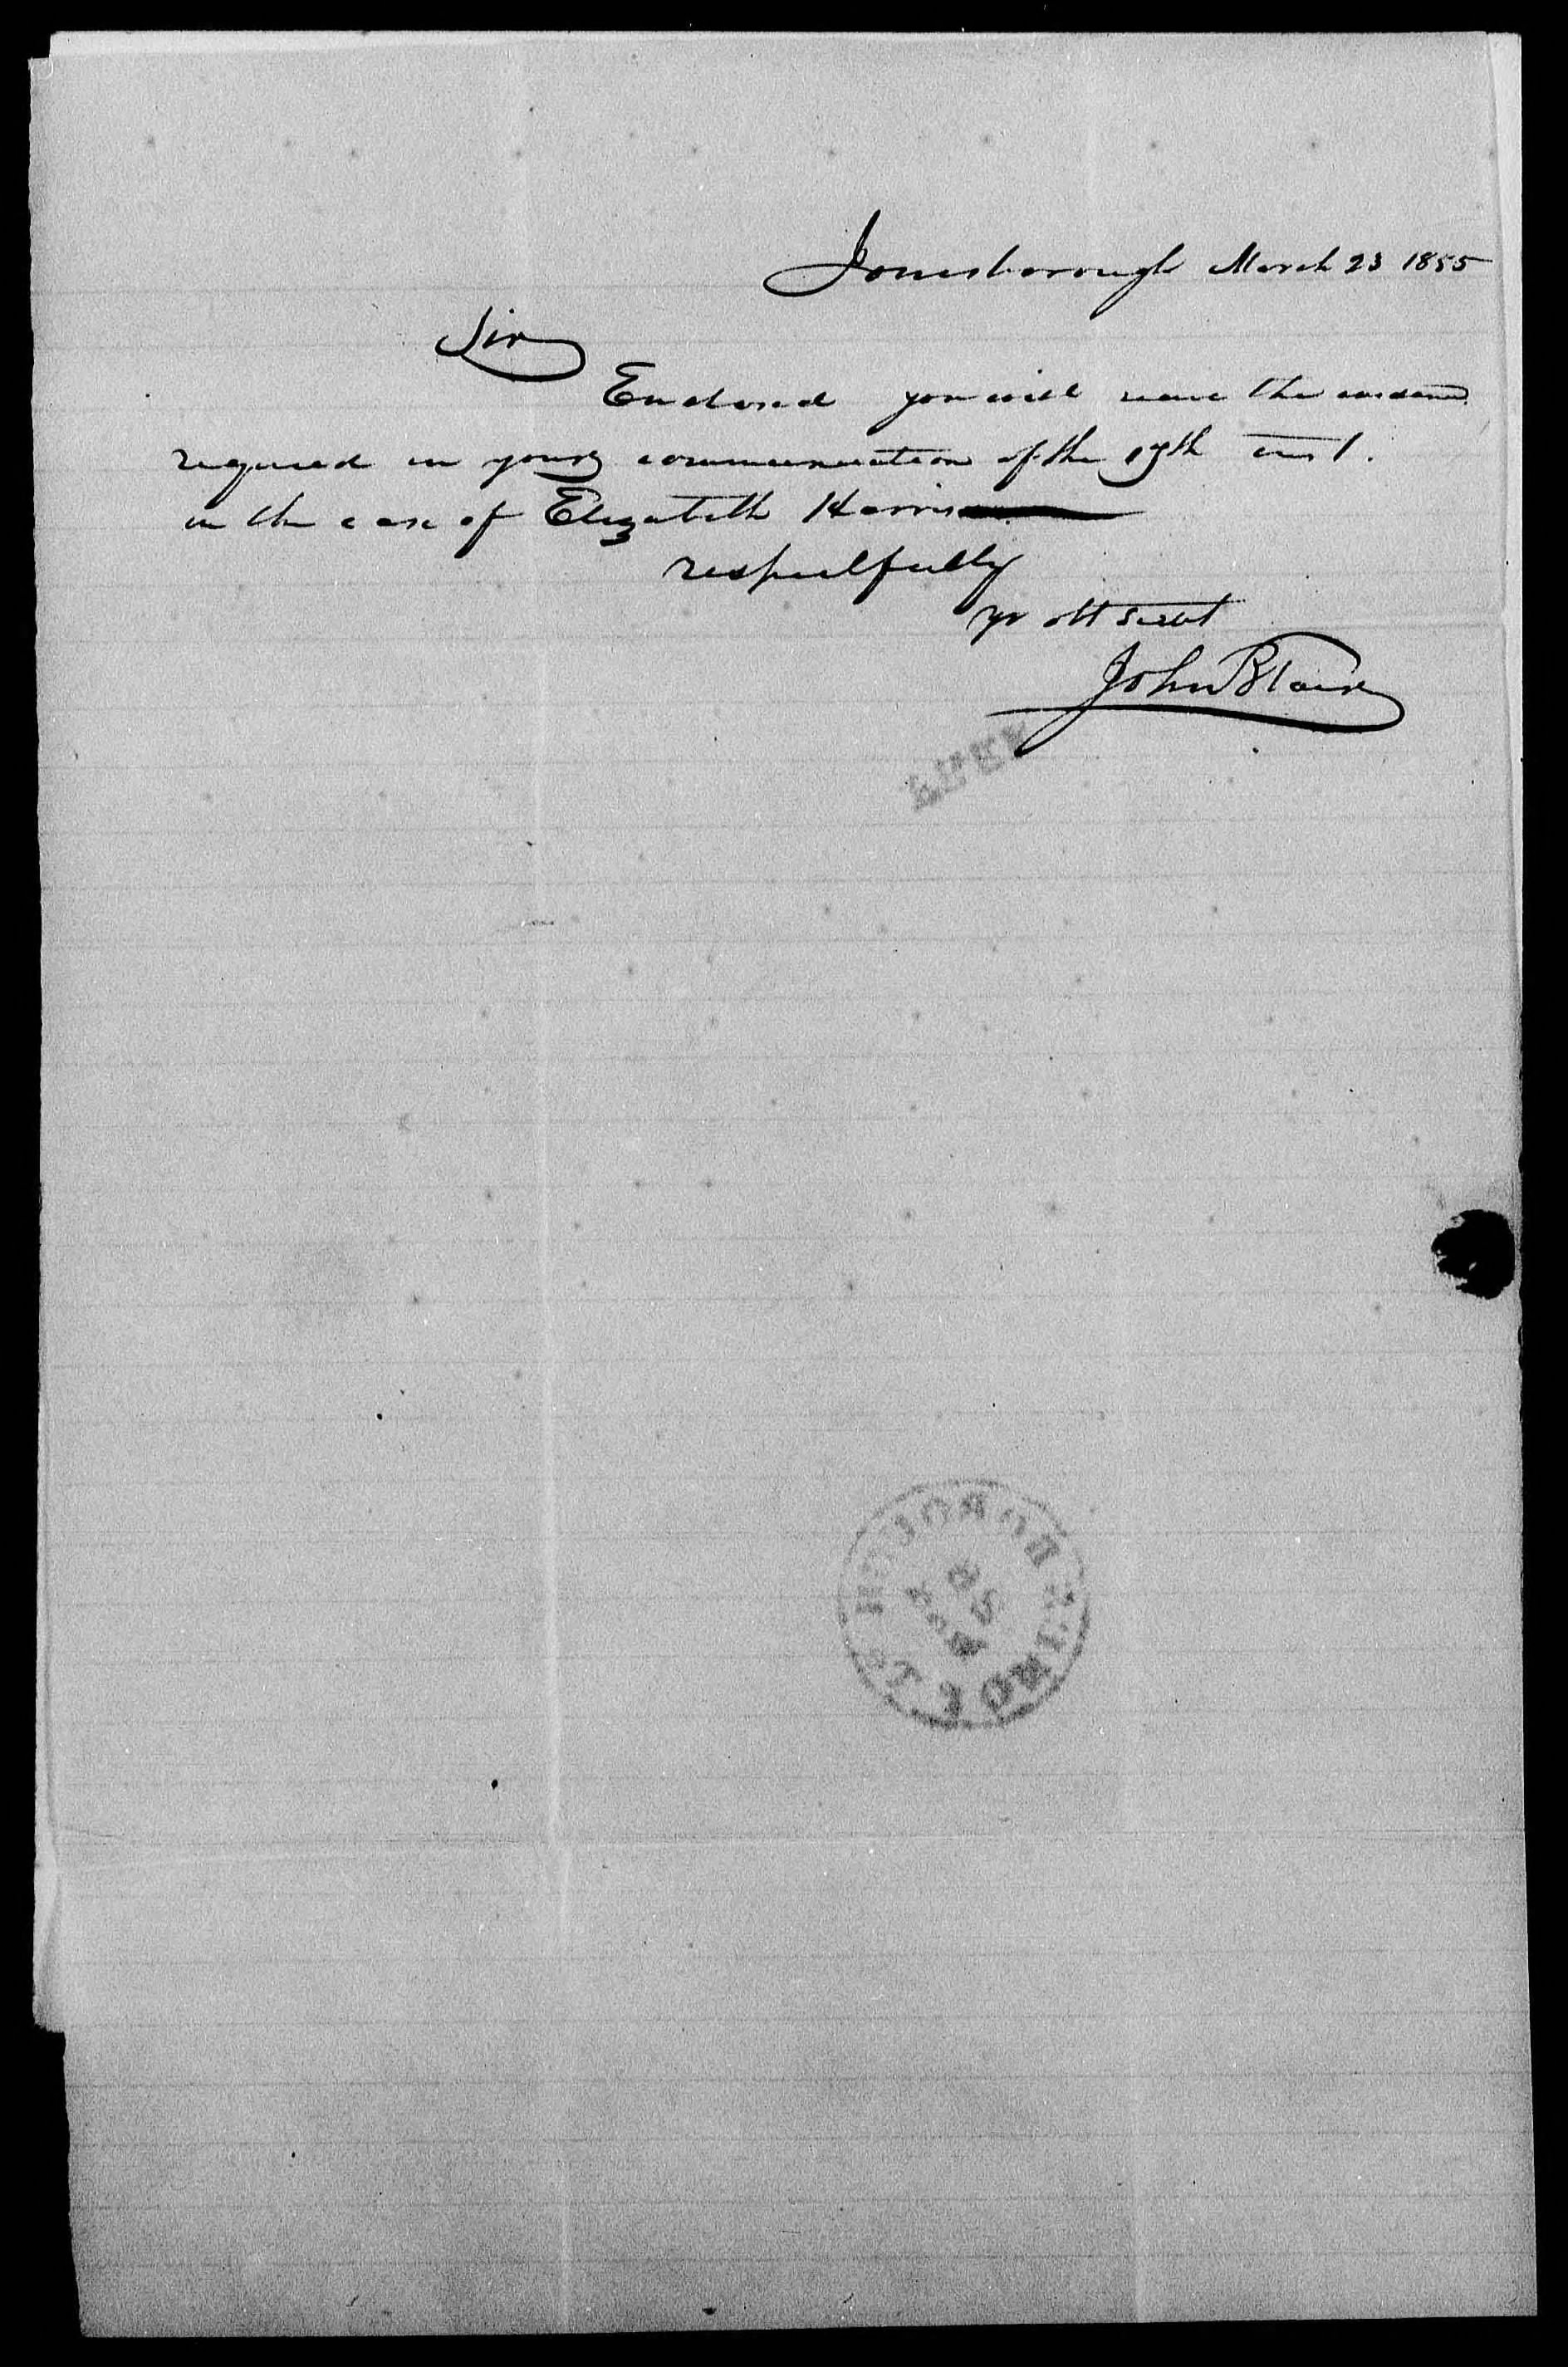 Jonesborough March 23 1855
Sir
Enclosed you will receive the evidence
required in your communication of the 19th inst.
in the case of Elizabeth Harris
respectfully
yr obt servt
John Blair
FREE
JONESBOROUGH